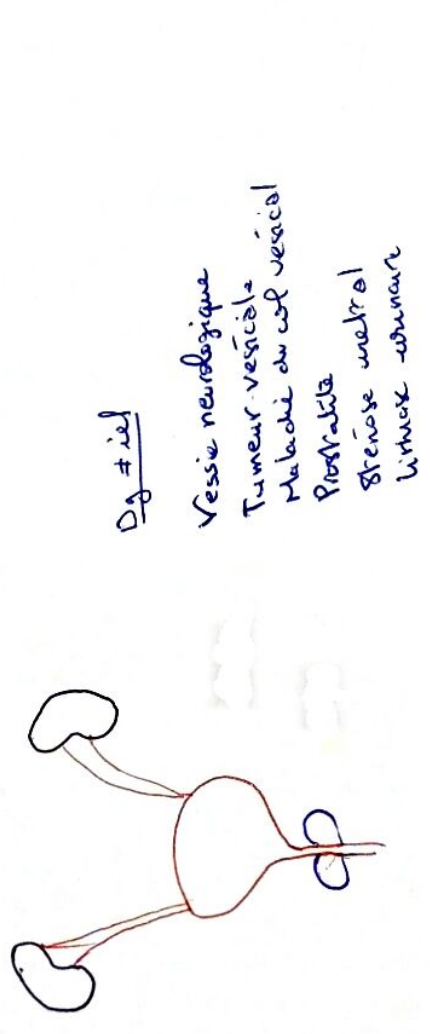 Dg ≠ iel
Vessie neurologique
Tumeur vésicale
Maladie du col vésical
Prostatite
Sténose uretral
Lithiase urinaire